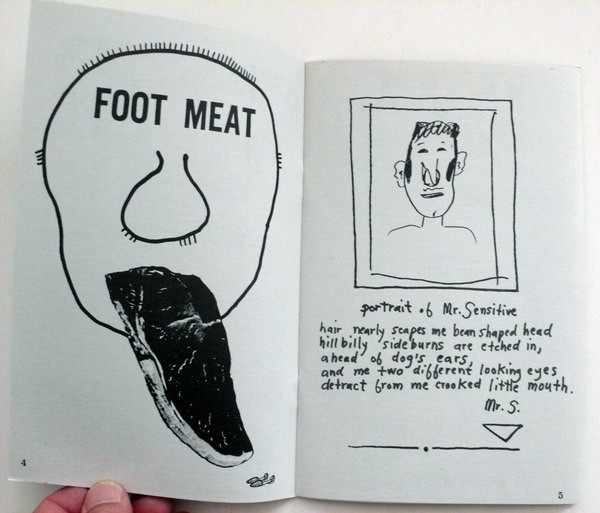 FOOT MEAT
4
portrait of Mr. Sensitive
hair nearly scapes me bean shaped head
hillbilly sideburns are etched in,
ahead of dog's ears,
and me two different looking eyes
detract from me crooked little mouth.
Mr. S.
5